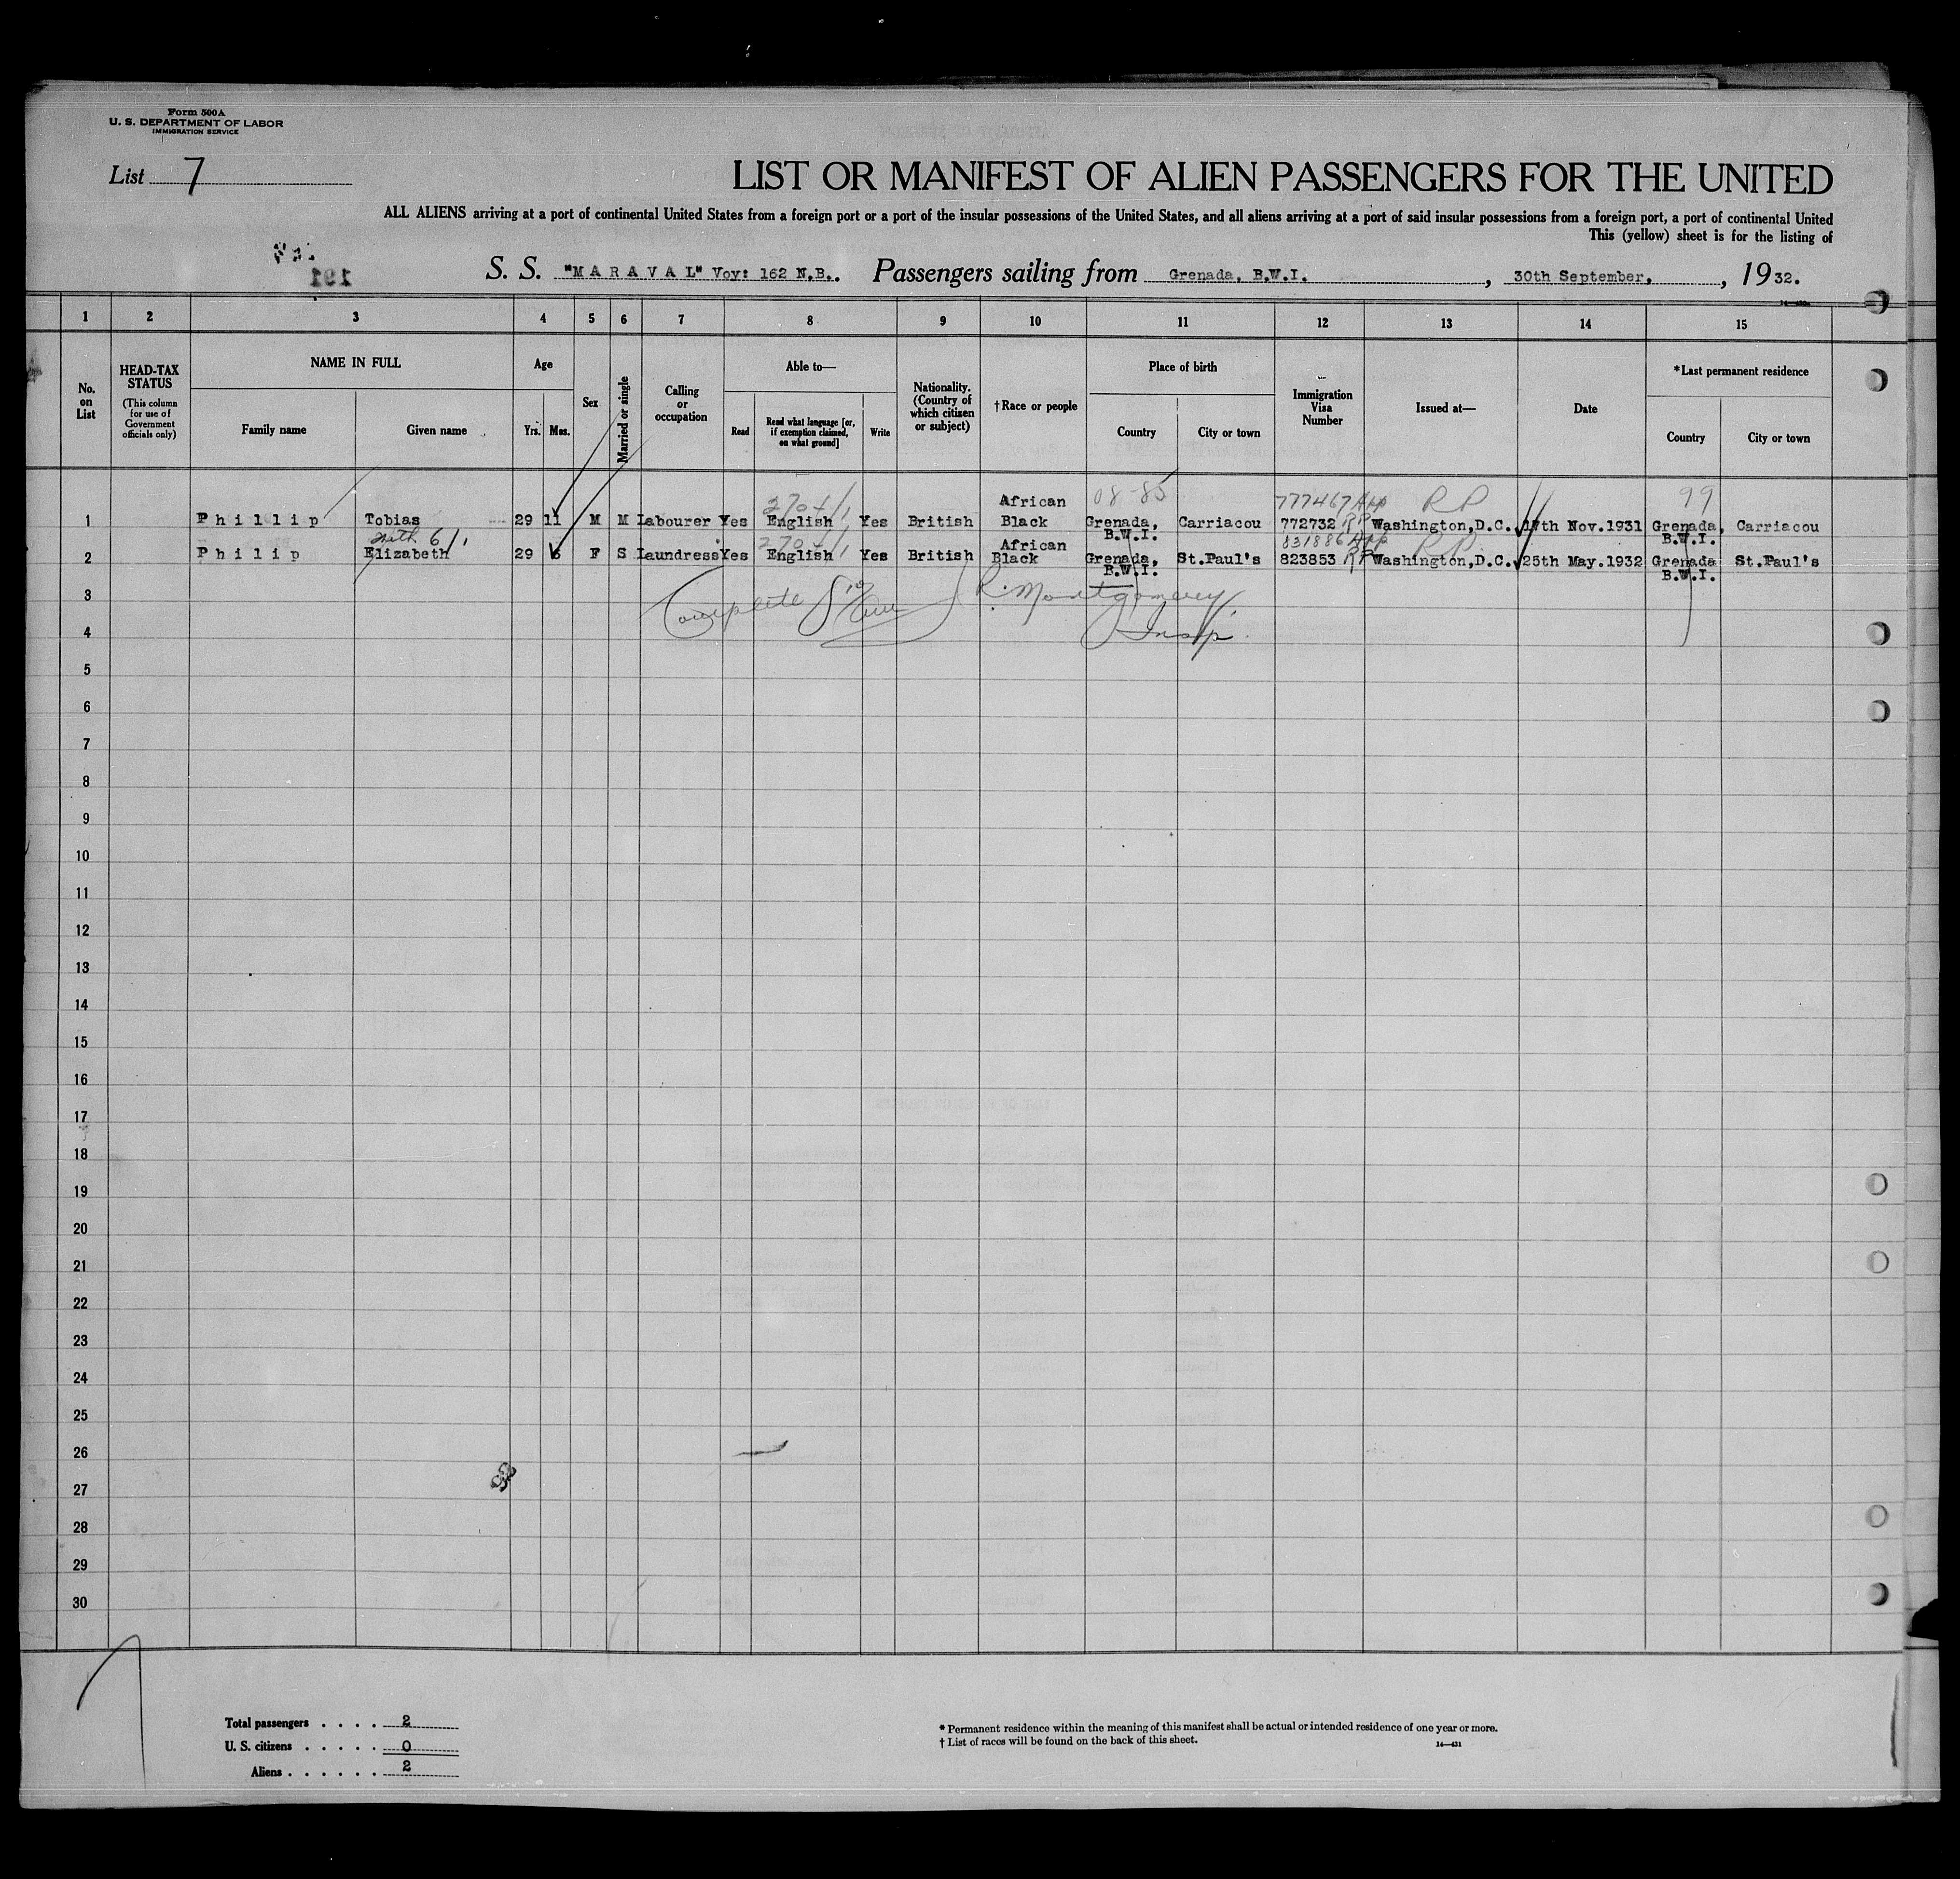 Form 500A
U. S. DEPARTMENT OF LABOR
IMMIGRATION SERVICE
List 7
LIST OR MANIFEST OF ALIEN PASSENGERS FOR THE UNITED
ALL ALIENS arriving at a port of continental United States from a foreign port or a port of the insular possessions of the United States, and all aliens arriving at a port of said insular possessions from a foreign port, a port of continental United
This (yellow) sheet is for the listing of
191
S. S. "M A R A V A L" Voy: 162 N.B.. Passengers sailing from Grenada, B.W.I. , 30th September, , 1932.
1 2 3 4 5 6 7 8 9 10 11 12 13 14 15
No. on List
HEAD-TAX STATUS
(This column for use of Government officials only)
NAME IN FULL
Family name Given name
Age
Yrs. Mos.
Sex
Married or single
Calling or occupation
Able to—
Read Read what language [or, if exemption claimed, on what ground] Write
Nationality. (Country of which citizen or subject)
†Race or people
Place of birth
Country City or town
Immigration Visa Number
Issued at—
Date
*Last permanent residence
Country City or town
African 08-85 777467 RP 99
1 Phillip Tobias 29 11 M M Labourer Yes English Yes British Black Grenada, Carriacou 772732 RP Washington,D.C. 17th Nov.1931 Grenada, Carriacou
B.W.I. B.W.I.
6/1 African 831886 RP
2 Philip Elizabeth 29 6 F S Laundress Yes English Yes British Black Grenada, St.Paul's 823853 RP Washington,D.C. 25th May.1932 Grenada St.Paul's
B.W.I. B.W.I.
Complete R. Montgomery
Insp.
3
4
5
6
7
8
9
10
11
12
13
14
15
16
17
18
19
20
21
22
23
24
25
26
27
28
29
30
Total passengers . . . . 2
U. S. citizens . . . . . 0
Aliens . . . . . . 2
* Permanent residence within the meaning of this manifest shall be actual or intended residence of one year or more.
† List of races will be found on the back of this sheet.
14—431